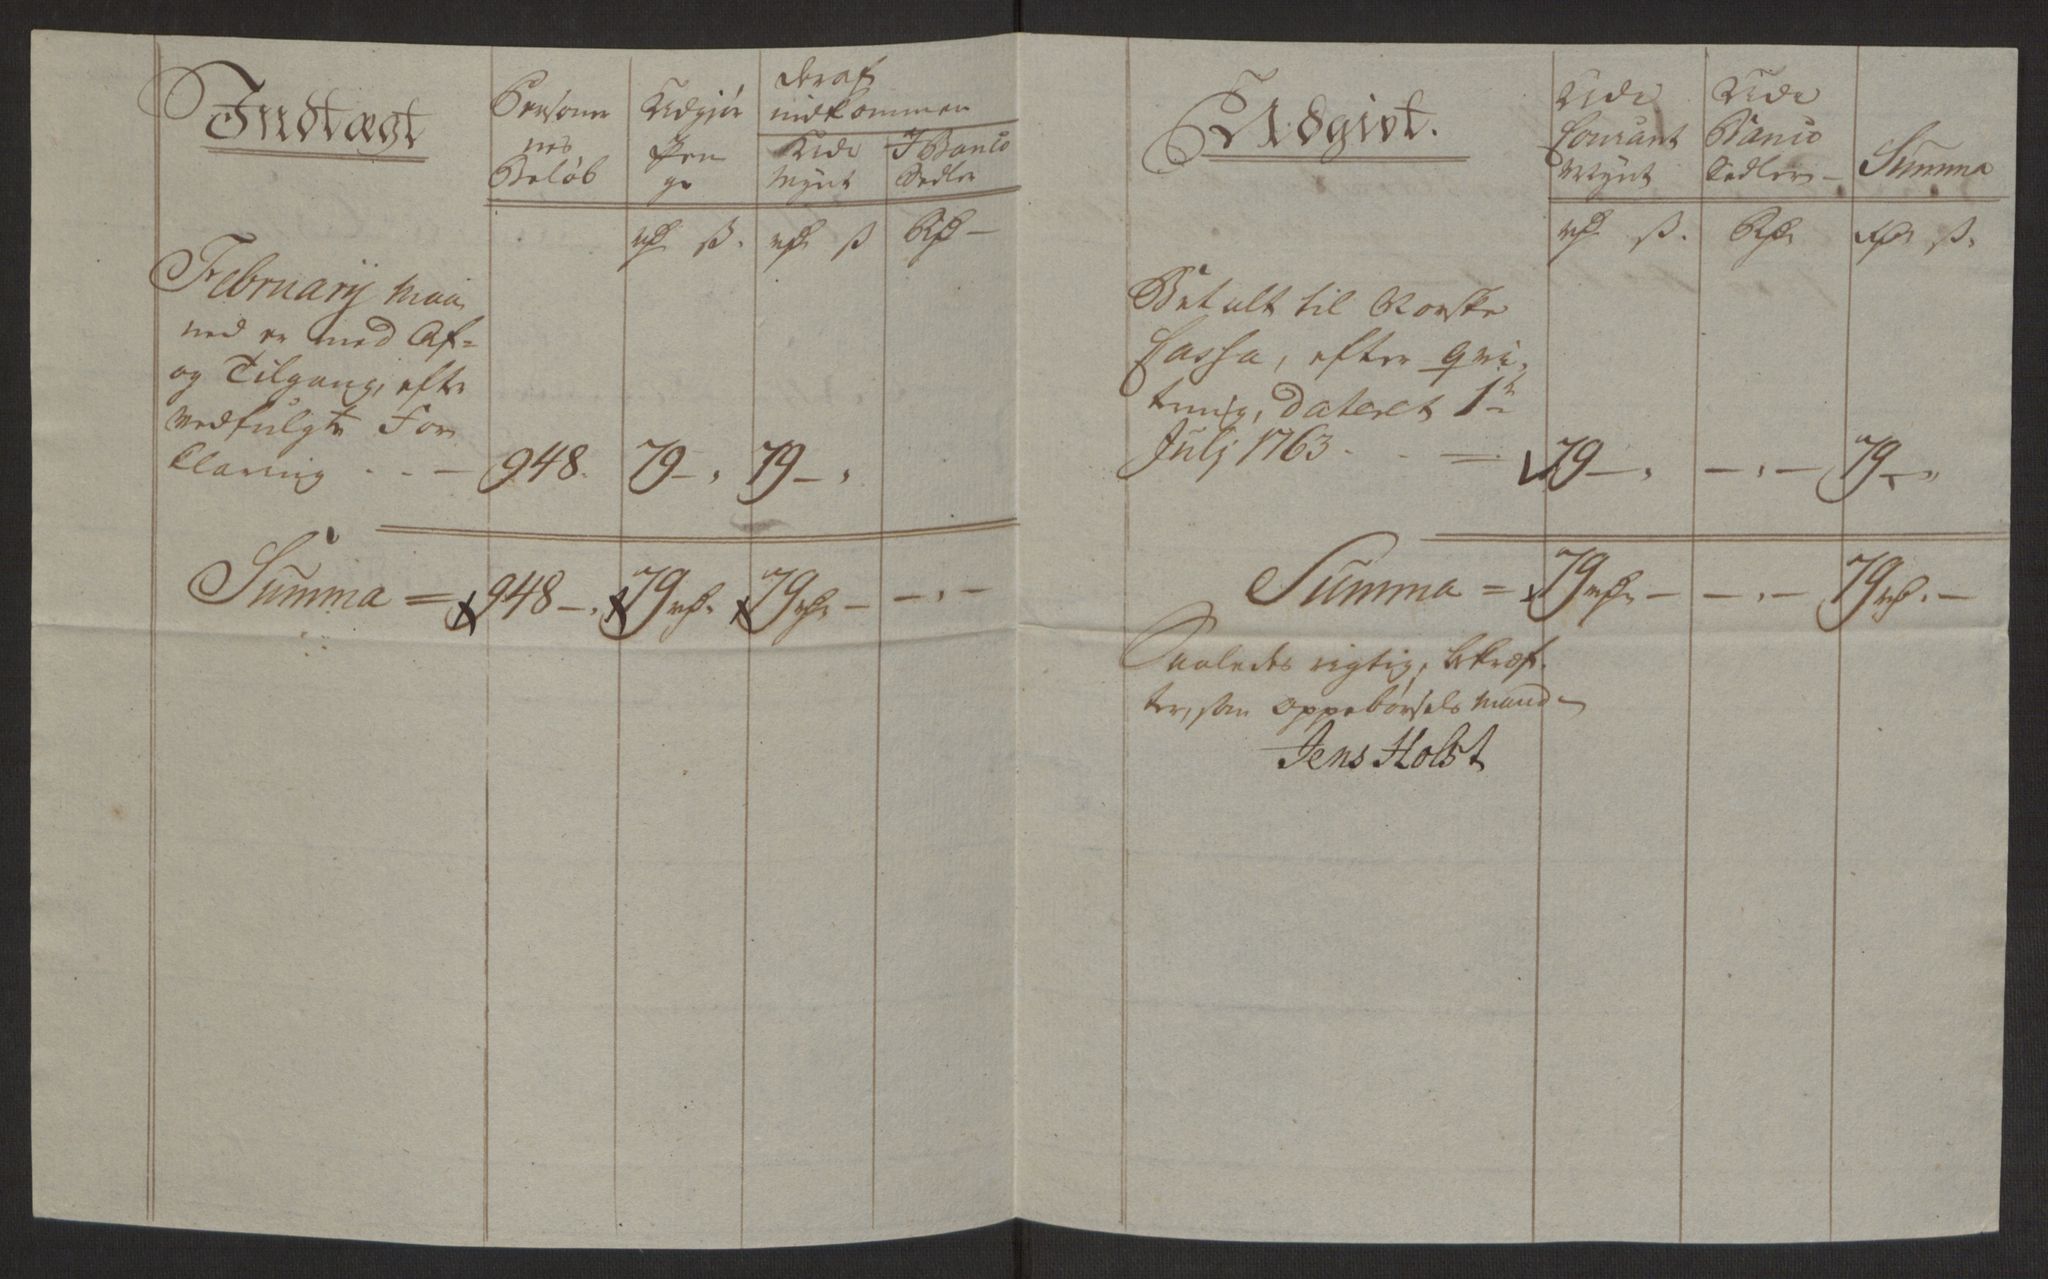 Indtægt
Personer
nes
Beløb
Udgjør
Pen
ge
deraf
indkommen
Udi
Mynt
I Banco
Sedler
rd ß. rd ß Rd –
February Maa
ned er med Af=
og Tilgang, efter
vedfulgte For
Claring . . – 948. 79 – , 79 – ,
Summa = 948 – . 79 rd. 79 rd. – – . –
Udgivt.
Udi
Courant
Mynt
Udi
Banco
Sedler –
Summa
rd ß. Rd. rd. ß.
Betalt til Norske
Cassa, efter qvi,
tering, dateret 1te
Julj 1763 . . = 79 – , – . – 79 – ,
Summa = 79 rd. – – . – 79 rd. –
Saaledes rigtig, bekræf,
ter, som Oppebørsels Mand
Jens Holst